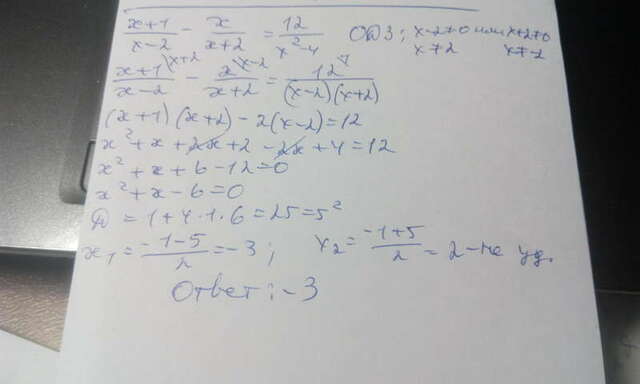 x+1/x-2 - x/x+2 = 12/x²-4 ОДЗ; x-2≠0 или x+2≠0
x≠2 x≠-2
x+1\x+2/x-2 - x\x-2/x+2 = 12/(x-2)(x+2)
(x+1)(x+2)-2(x-2)=12
x²+x+2x+2-2x+4=12
x²+x+6-12=0
x²+x-6=0
Д=1+4·1·6=25=5²
x₁=-1-5/2=-3; x₂=-1+5/2=2-не уд.
Ответ:-3